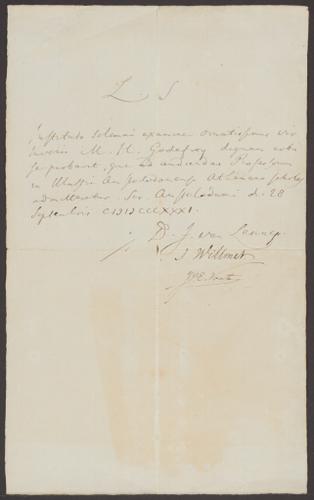 L S
Instituto solemni examine ornatissimus vir
iuvenis M. H. Godefroy dignum
se probavit, qui ad audiendas Professorum
in Illustri Amstelodamensi Athenaeo scholas
admitteretur. Amstelodami d. 28
Septembris CIƆIƆCCCXXXI.
D. J. van Lennep
J Willmet